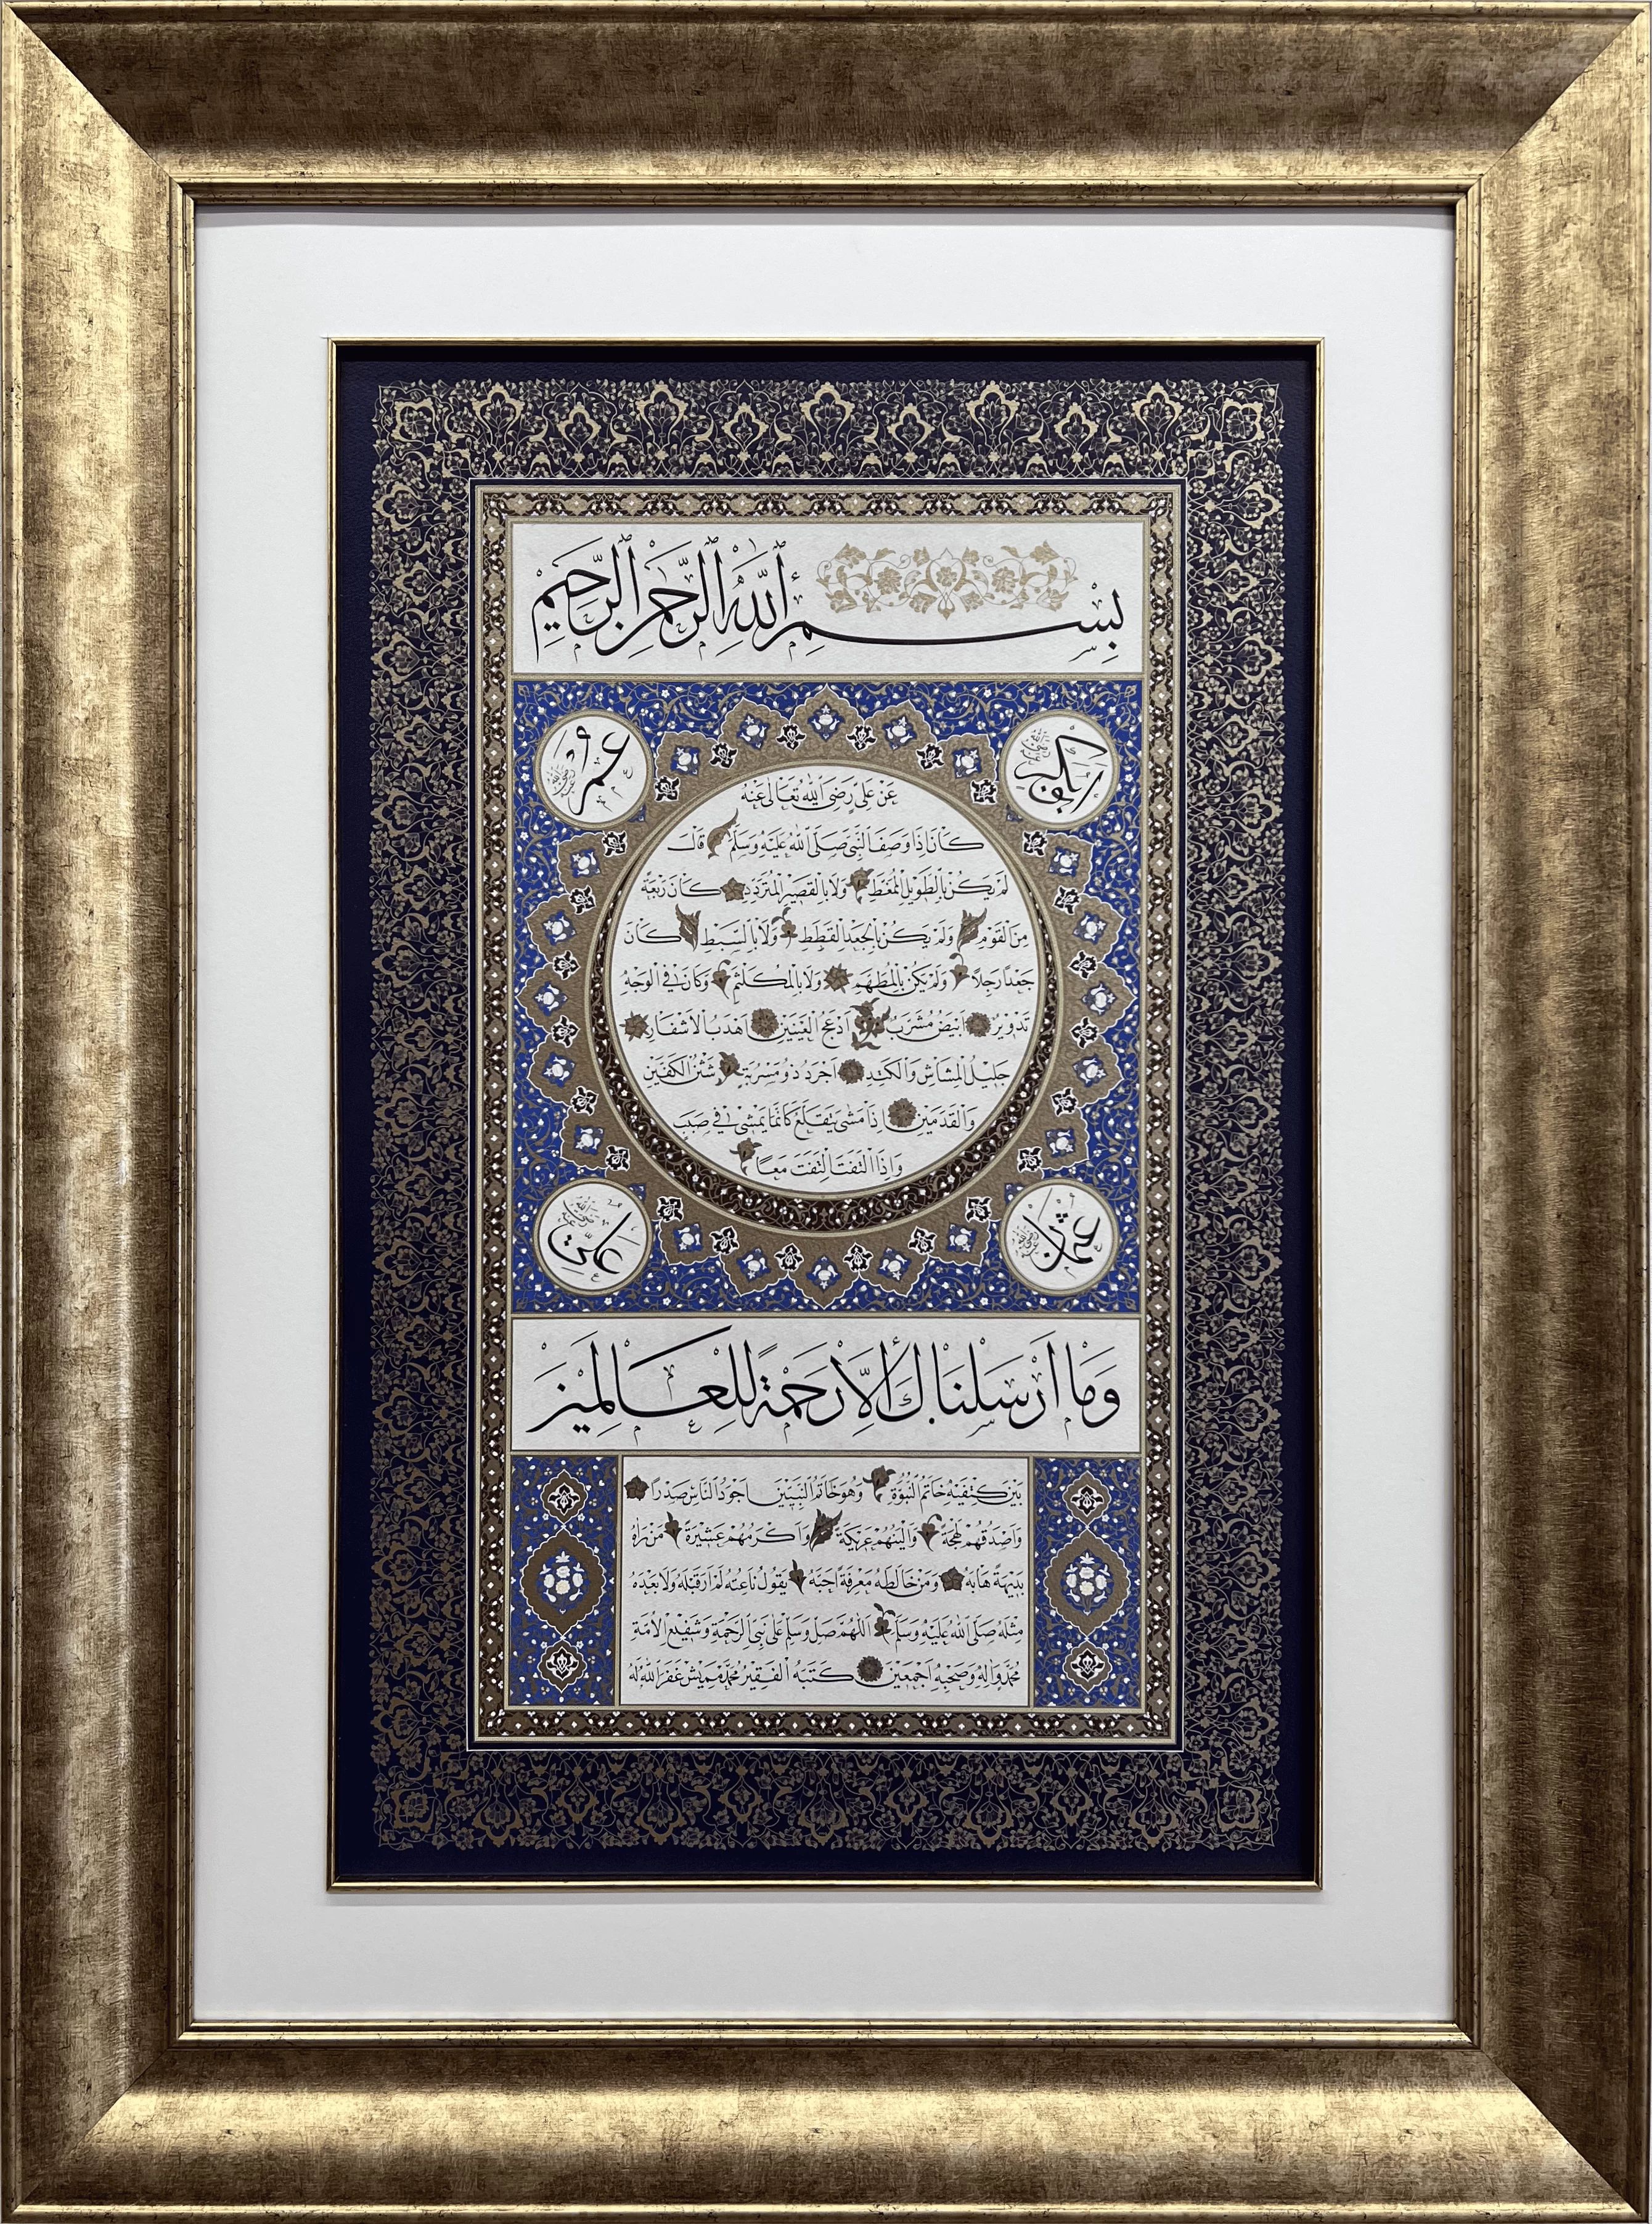 بِسْمِ اللّٰهِ الرَّحْمٰنِ الرَّحِيمِ
ابو بكر رضي الله عنه
عُمَرُ رضي الله عنه
عَنْ عَلِيٍّ رَضِيَ اللّٰهُ تَعَالٰى عَنْهُ
كَانَ اِذَا وَصَفَ النَّبِيَّ صَلَّى اللّٰهُ عَلَيْهِ وَسَلَّمَ قَالَ
لَمْ يَكُنْ بِالطَّوِيلِ الْمُمَغَّطِ وَلَا بِالْقَصِيرِ الْمُتَرَدِّدِ كَانَ رَبْعَةً
مِنَ الْقَوْمِ وَلَمْ يَكُنْ بِالْجَعْدِ الْقَطِطِ وَلَا بِالسَّبِطِ كَانَ
جَعْدًا رَجِلًا وَلَمْ يَكُنْ بِالْمُطَهَّمِ وَلَا بِالْمُكَلْثَمِ وَكَانَ فِي الْوَجْهِ
تَدْوِيرٌ اَبْيَضُ مُشْرَبٌ اَدْعَجُ الْعَيْنَيْنِ اَهْدَبُ الْاَشْفَارِ
جَلِيلُ الْمُشَاشِ وَالْكَتَدِ اَجْرَدُ ذُو مَسْرُبَةٍ شَثْنُ الْكَفَّيْنِ
وَالْقَدَمَيْنِ اِذَا مَشٰى يَتَقَلَّعُ كَاَنَّمَا يَمْشِي فِي صَبَبٍ
وَاِذَا الْتَفَتَ الْتَفَتَ مَعًا
عُثْمَان رضي الله عنه
عَلِيّ رضي الله عنه
وَمَا اَرْسَلْنَاكَ اِلَّا رَحْمَةً لِلْعَالَمِينَ
بَيْنَ كَتِفَيْهِ خَاتَمُ النُّبُوَّةِ وَهُوَ خَاتَمُ النَّبِيِّينَ اَجْوَدُ النَّاسِ صَدْرًا
وَاَصْدَقُهُمْ لَهْجَةً وَاَلْيَنُهُمْ عَرِيكَةً وَاَكْرَمُهُمْ عَشِيرَةً مَنْ رَاٰهُ
بَدِيهَةً هَابَهُ وَمَنْ خَالَطَهُ مَعْرِفَةً اَحَبَّهُ يَقُولُ نَاعِتُهُ لَمْ اَرَ قَبْلَهُ وَلَا بَعْدَهُ
مِثْلَهُ صَلَّى اللّٰهُ عَلَيْهِ وَسَلَّمَ اَللّٰهُمَّ صَلِّ وَسَلِّمْ عَلٰى نَبِيِّ الرَّحْمَةِ وَشَفِيعِ الْاُمَّةِ
مُحَمَّدٍ وَاٰلِهِ وَصَحْبِهِ اَجْمَعِينَ كَتَبَهُ الْفَقِيرُ مُحَمَّد مميش غَفَرَ اللّٰهُ لَهُ